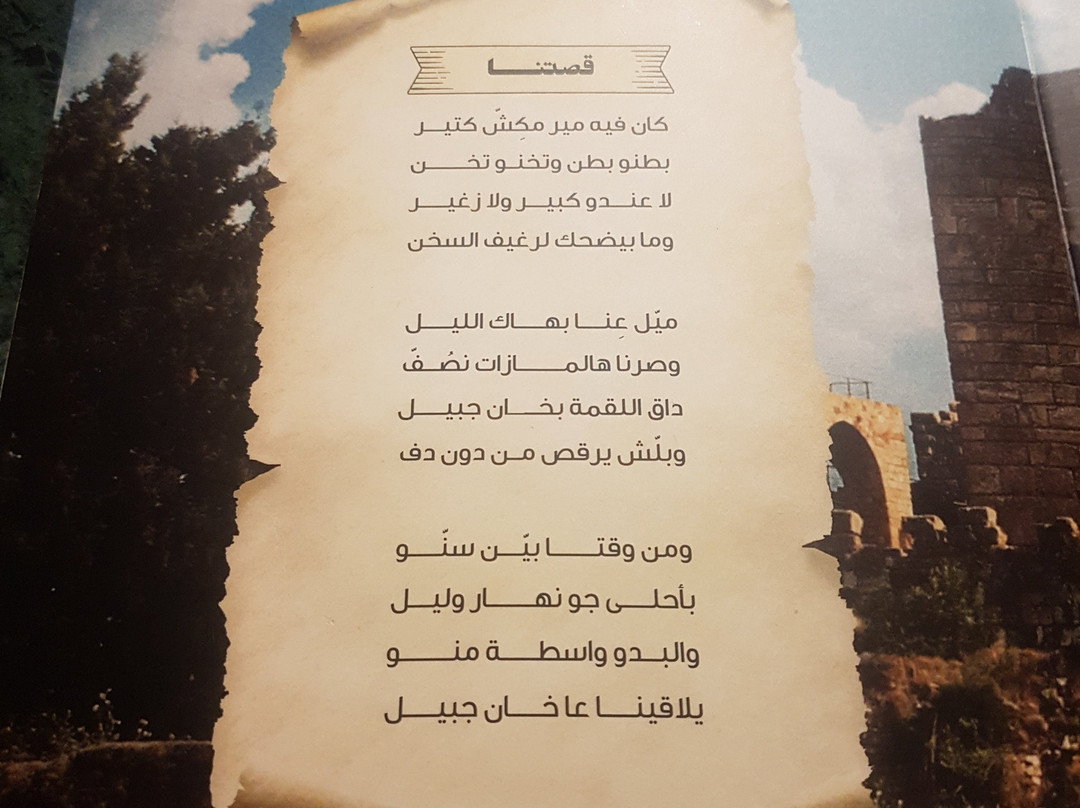 قصتنا
كان فيه مير مكِشّ كتير
بطنو بطن وتخنو تخن
لا عندو كبير ولا زغير
وما بيضحك لرغيف السخن
ميّل عِنا بهاك الليل
وصرنا هالمازات نصُفّ
داق اللقمة بخان جبيل
وبلّش يرقص من دون دف
ومن وقتا بيّن سنّو
بأحلى جو نهار وليل
والبدو واسطة منو
يلاقينا عا خان جبيل